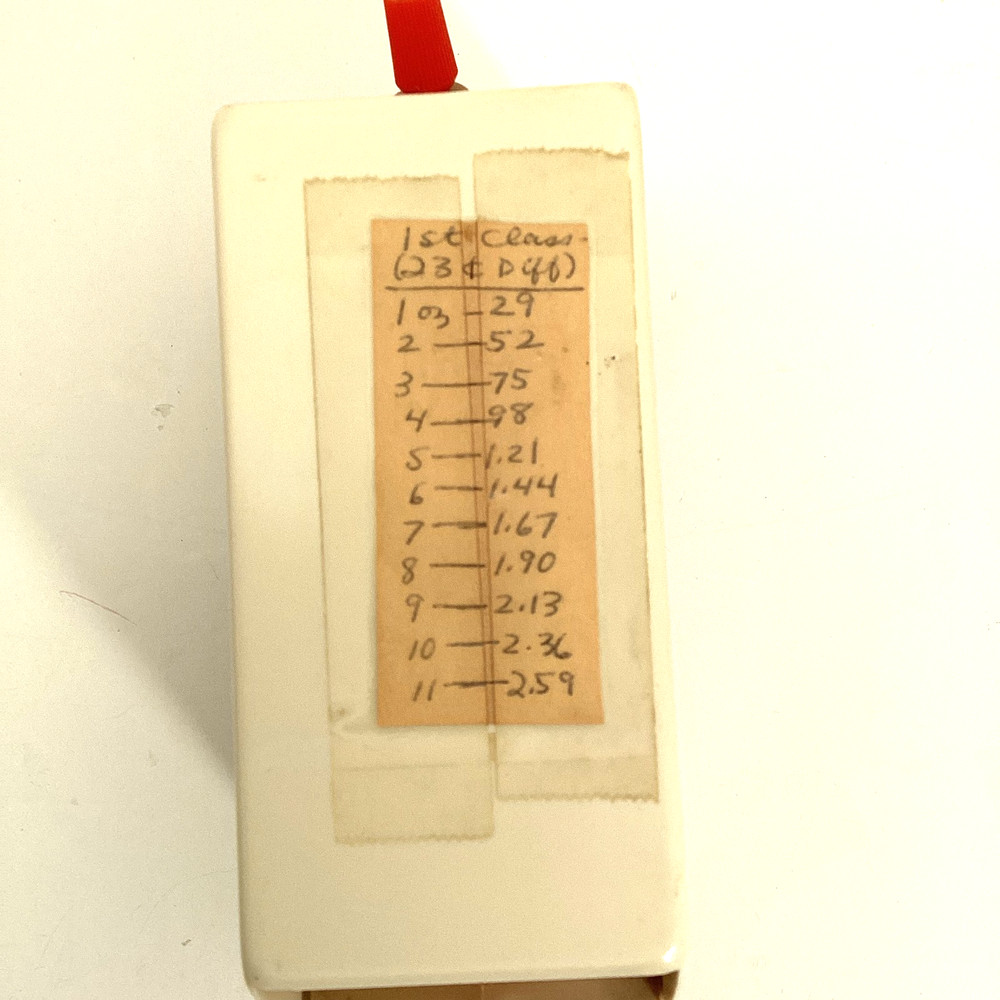 1st Class
(23¢ Diff)
1 oz - 29
2 — 52
3 — 75
4 — 98
5 — 1.21
6 — 1.44
7 — 1.67
8 — 1.90
9 — 2.13
10 — 2.36
11 — 2.59